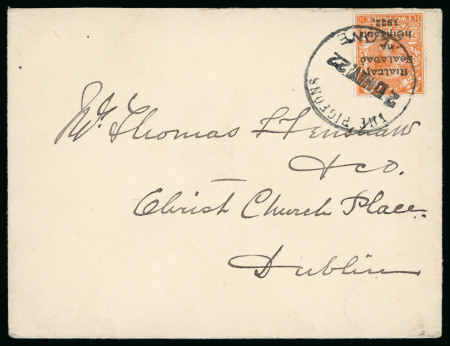 Rialtas
Sealadac
na
hÉireann
1922
THE PIGEONS
2 MAY 22
Mr. Thomas Henshaw
& Co.
Christ Church Place.
Dublin